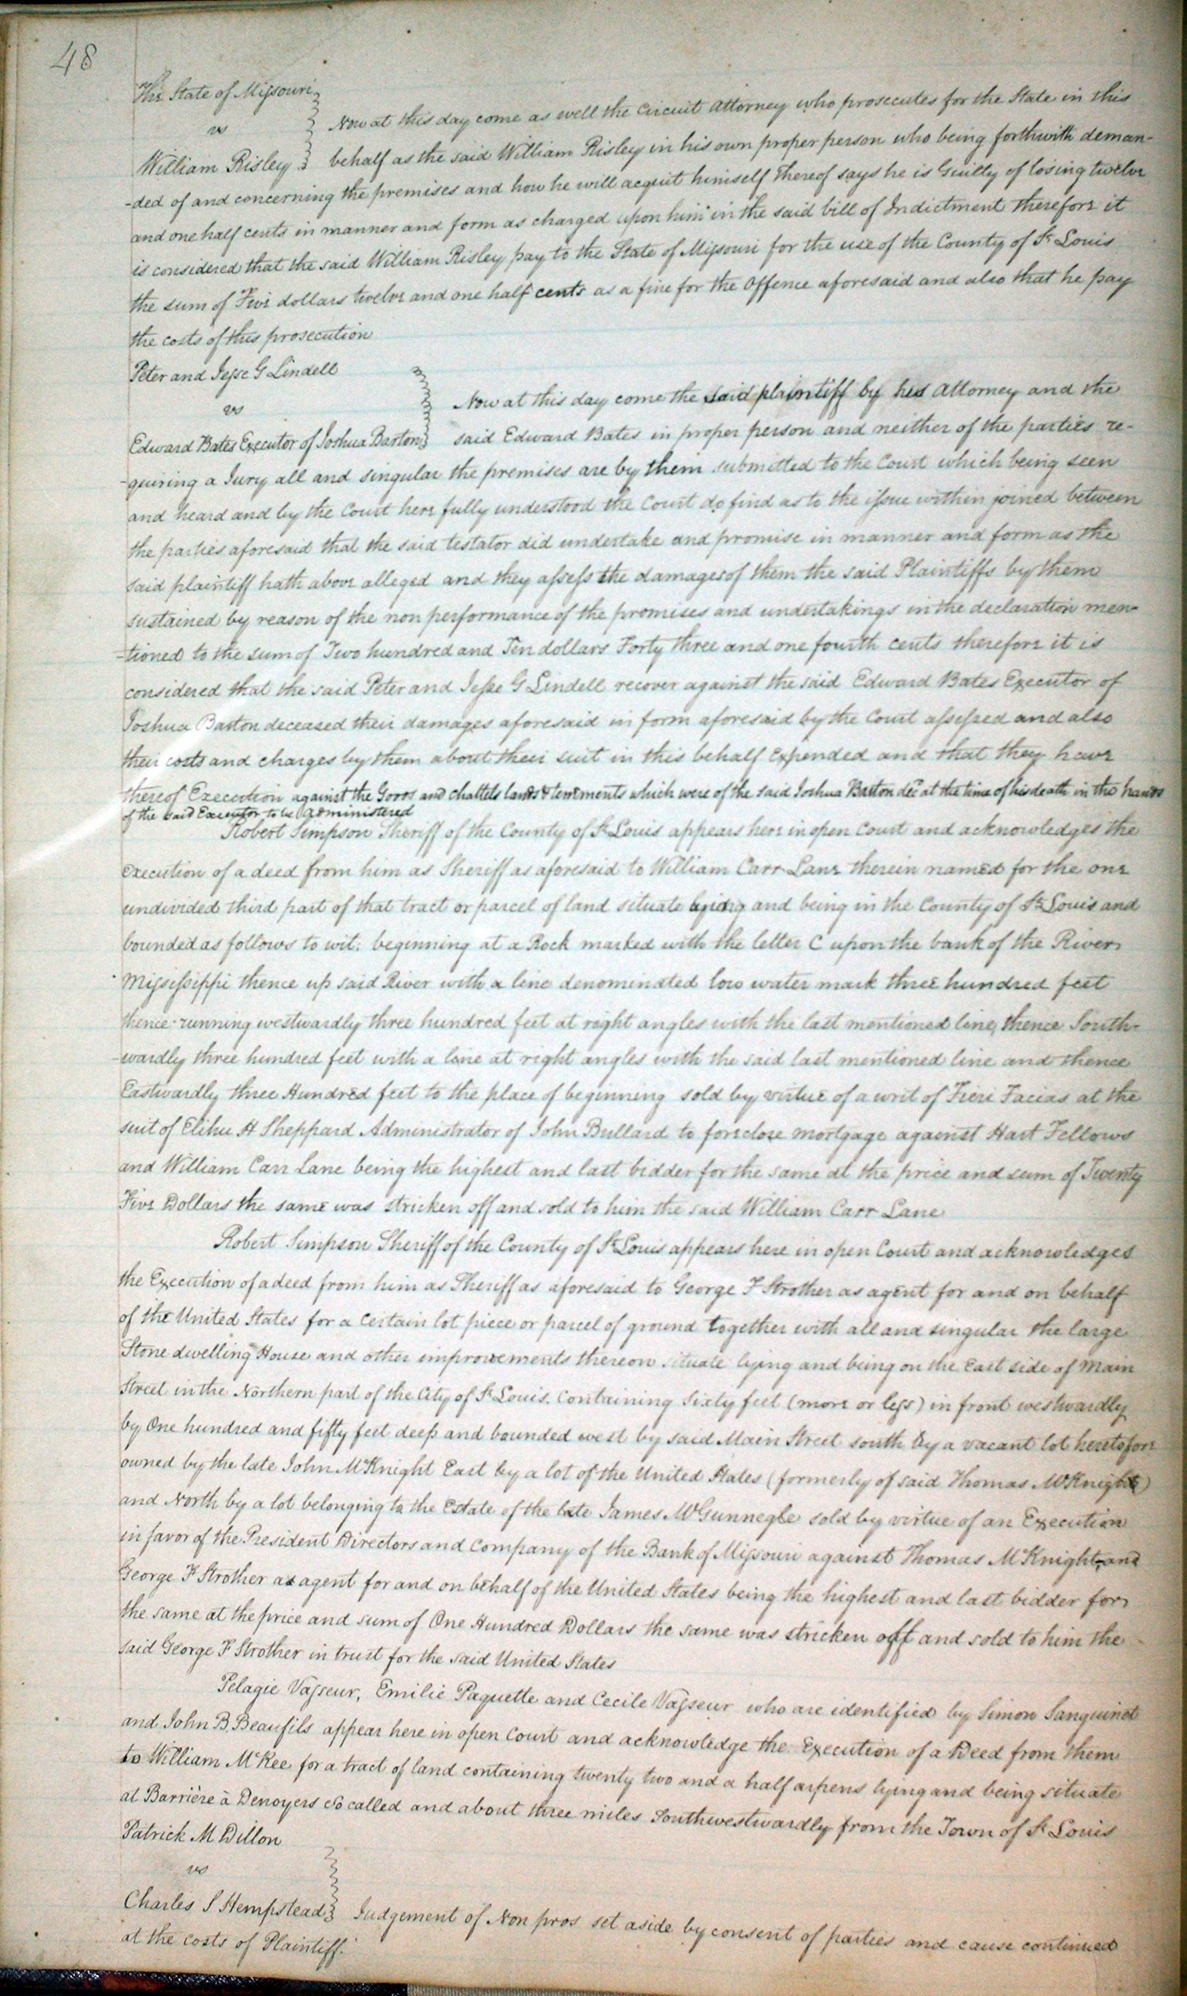 48
The State of Missouri
vs
Now at this day come as well the Circuit Attorney who prosecutes for the State in this
William Risley behalf as the said William Risley in his own proper person who being forthwith deman-
-ded of and concerning the premises and how he will acquit himself thereof says he is Guilty of losing twelve
and one half cents in manner and form as charged upon him in the said bill of Indictment therefore it
is considered that the said William Risley pay to the State of Missouri for the use of the County of St Louis
the sum of Five dollars twelve and one half cents as a fine for the Offence aforesaid and also that he pay
the costs of this prosecution
Peter and Jesse G Lindell
vs
Now at this day come the said plaintiff by his Attorney and the
Edward Bates Executor of Joshua Barton said Edward Bates in proper person and neither of the parties re-
-quiring a Jury all and singular the premises are by them submitted to the Court which being seen
and heard and by the Court here fully understood the Court do find as to the issue within joined between
the parties aforesaid that the said testator did undertake and promise in manner and form as the
said plaintiff hath above alleged and they assess the damages of them the said Plaintiffs by them
sustained by reason of the non performance of the promises and undertakings in the declaration men-
-tioned to the sum of Two hundred and Ten dollars Forty three and one fourth cents therefore it is
considered that the said Peter and Jesse G Lindell recover against the said Edward Bates Executor of
Joshua Barton deceased their damages aforesaid in form aforesaid by the Court assessed and also
their costs and charges by them about their suit in this behalf Expended and that they have
thereof Execution against the Goods and chattels lands & tenements which were of the said Joshua Barton decd at the time of his death in the hands
of the said Executor to be administered
Robert Simpson Sheriff of the County of St Louis appears here in open Court and acknowledges the
Execution of a deed from him as Sheriff as aforesaid to William Carr Lane therein named for the one
undivided third part of that tract or parcel of land situate lying and being in the County of St Louis and
bounded as follows to wit: beginning at a Rock marked with the letter C upon the bank of the River
Mississippi thence up said River with a line denominated low water mark three hundred feet
thence running westwardly three hundred feet at right angles with the last mentioned line, thence South-
-wardly three hundred feet with a line at right angles with the said last mentioned line and thence
Eastwardly three Hundred feet to the place of beginning sold by virtue of a writ of Fieri Facias at the
suit of Elihu H Sheppard Administrator of John Bullard to foreclose mortgage against Hart Fellows
and William Carr Lane being the highest and last bidder for the same at the price and sum of Twenty
Five Dollars the same was stricken off and sold to him the said William Carr Lane
Robert Simpson Sheriff of the County of St Louis appears here in open Court and acknowledges
the Execution of a deed from him as Sheriff as aforesaid to George F Strother as agent for and on behalf
of the United States for a certain lot piece or parcel of ground together with all and singular the large
Stone dwelling House and other improvements thereon situate lying and being on the East side of Main
Street in the Northern part of the City of St Louis. Containing Sixty feet (more or less) in front westwardly
by One hundred and fifty feet deep and bounded west by said Main Street south by a vacant lot heretofore
owned by the late John McKnight East by a lot of the United States (formerly of said Thomas McKnight)
and North by a lot belonging to the Estate of the late James McGunnegle sold by virtue of an Execution
in favor of the President Directors and Company of the Bank of Missouri against Thomas McKnight, and
George F Strother as agent for and on behalf of the United States being the highest and last bidder for
the same at the price and sum of One Hundred Dollars the same was stricken off and sold to him the
said George F Strother in trust for the said United States
Pelagie Vasseur, Emilie Paquette and Cecile Vasseur who are identified by Simon Sanguinet
and John B Beaufils appear here in open Court and acknowledge the Execution of a Deed from them
to William McKee for a tract of land containing twenty two and a half arpens lying and being situate
at Barrière à Denoyers so called and about three miles Southwestwardly from the Town of St Louis
Patrick M Dillon
vs
Charles S Hempstead Judgement of Non pros set aside by consent of parties and cause continued
at the costs of Plaintiff.